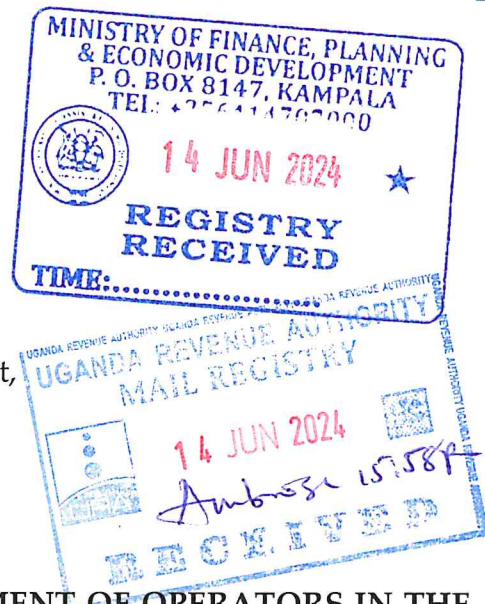 MINISTRY OF FINANCE, PLANNING
& ECONOMIC DEVELOPMENT
P. O. BOX 8147, KAMPALA
TEL:
14 JUN 2024
REGISTRY
RECEIVED
TIME:....................
t,
UGANDA REVENUE AUTHORITY
MAIL REGISTRY
14 JUN 2024
Ambrose 15:58
RECEIVED
MENT OF OPERATORS IN THE